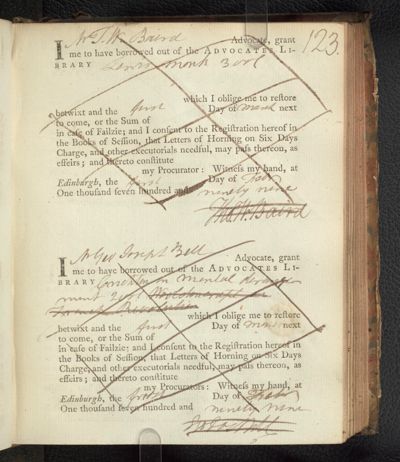 123.
I Mr T. W. Baird Advocate, grant
me to have borrowed out of the ADVOCATES LI-
BRARY Lewis monk 3 vol
which I oblige me to reſtore
betwixt and the first Day of March next
to come, or the Sum of
in caſe of Failzie; and I conſent to the Regiſtration hereof in
the Books of Seſſion, that Letters of Horning on Six Days
Charge, and other executorials needful, may paſs thereon, as
effeirs; and thereto conſtitute
my Procurator: Witneſs my hand, at
Edinburgh, the first Day of
One thouſand ſeven hundred and ninety nine
Tho W Baird
I Mr Geo Joseph Bell Advocate, grant
me to have borrowed out of the ADVOCATES LI-
BRARY Crichton on mental derange
ment 2 vol
which I oblige me to reſtore
betwixt and the first Day of next
to come, or the Sum of
in caſe of Failzie; and I conſent to the Regiſtration hereof in
the Books of Seſſion, that Letters of Horning on Six Days
Charge, and other executorials needful, may paſs thereon, as
effeirs; and thereto conſtitute
my Procurators: Witneſs my hand, at
Edinburgh, the Day of
One thouſand ſeven hundred and ninety nine
Bell